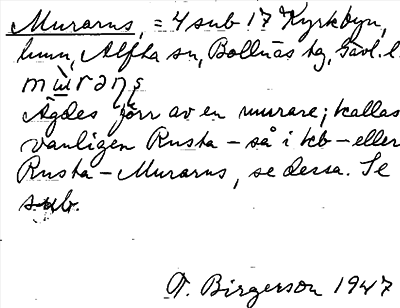 Murarns, = 4 sub 17 Kyrkbyn,
hmn, Alfta sn, Bollnäs tg, Gävl. l.
mùrəṇṣ
Ägdes förr av en murare; kallas
vanligen Rusta – så i kb – eller
Rusta-Murarns, se dessa. Se
sub.
T. Birgerson 1947